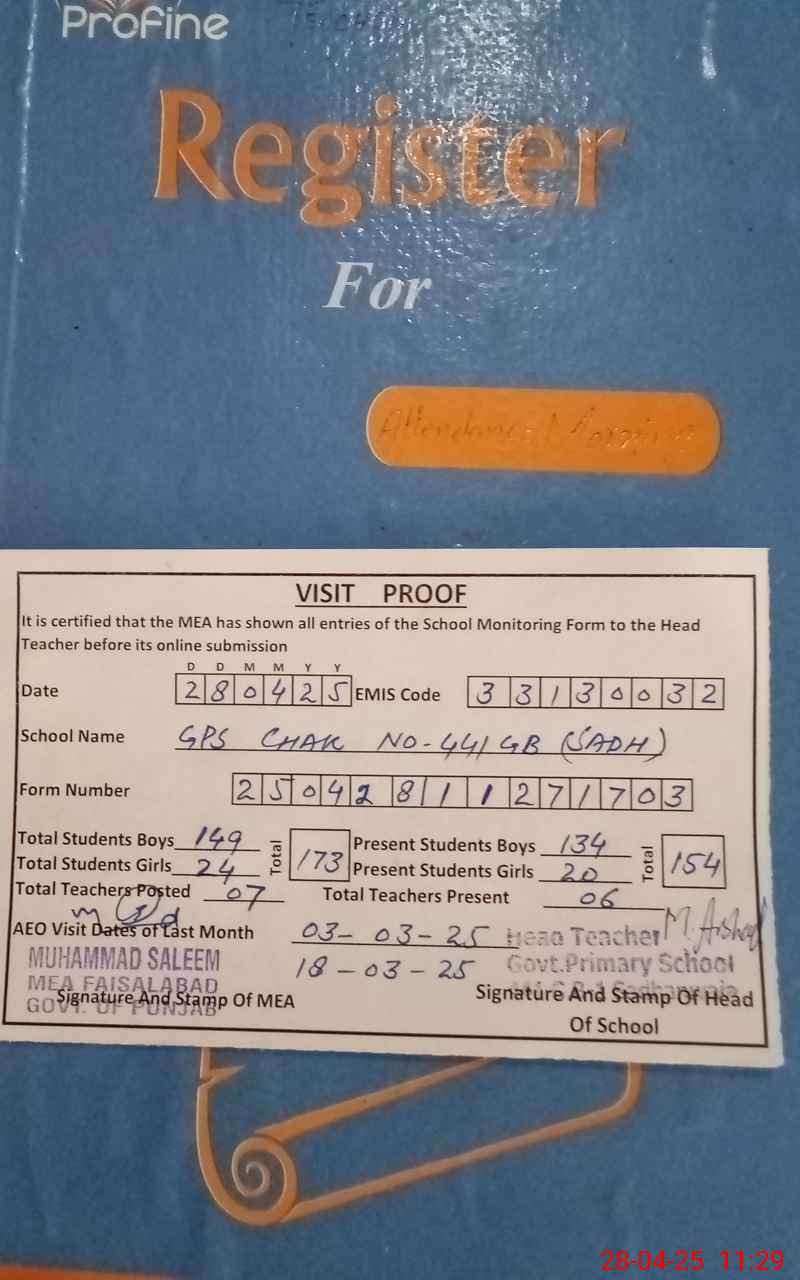 Profine
Register
For
Attendance
VISIT PROOF
It is certified that the MEA has shown all entries of the School Monitoring Form to the Head
Teacher before its online submission
D D M M Y Y
Date 2 8 0 4 2 5 EMIS Code 3 3 1 3 0 0 3 2
School Name GPS CHAK NO-441 GB (SADH)
Form Number 2 5 0 4 2 8 1 1 2 7 1 7 0 3
Total Students Boys 149 Total 173 Present Students Boys 134 Total 154
Total Students Girls 24 Present Students Girls 20
Total Teachers Posted 07 Total Teachers Present 06
AEO Visit Dates of Last Month 03-03-25 Head Teacher M. Arshad
MUHAMMAD SALEEM 18-03-25 Govt.Primary School
MEA FAISALABAD
GOVT. OF PUNJAB
Signature And Stamp Of MEA Signature And Stamp Of Head
Of School
28-04-25 11:29